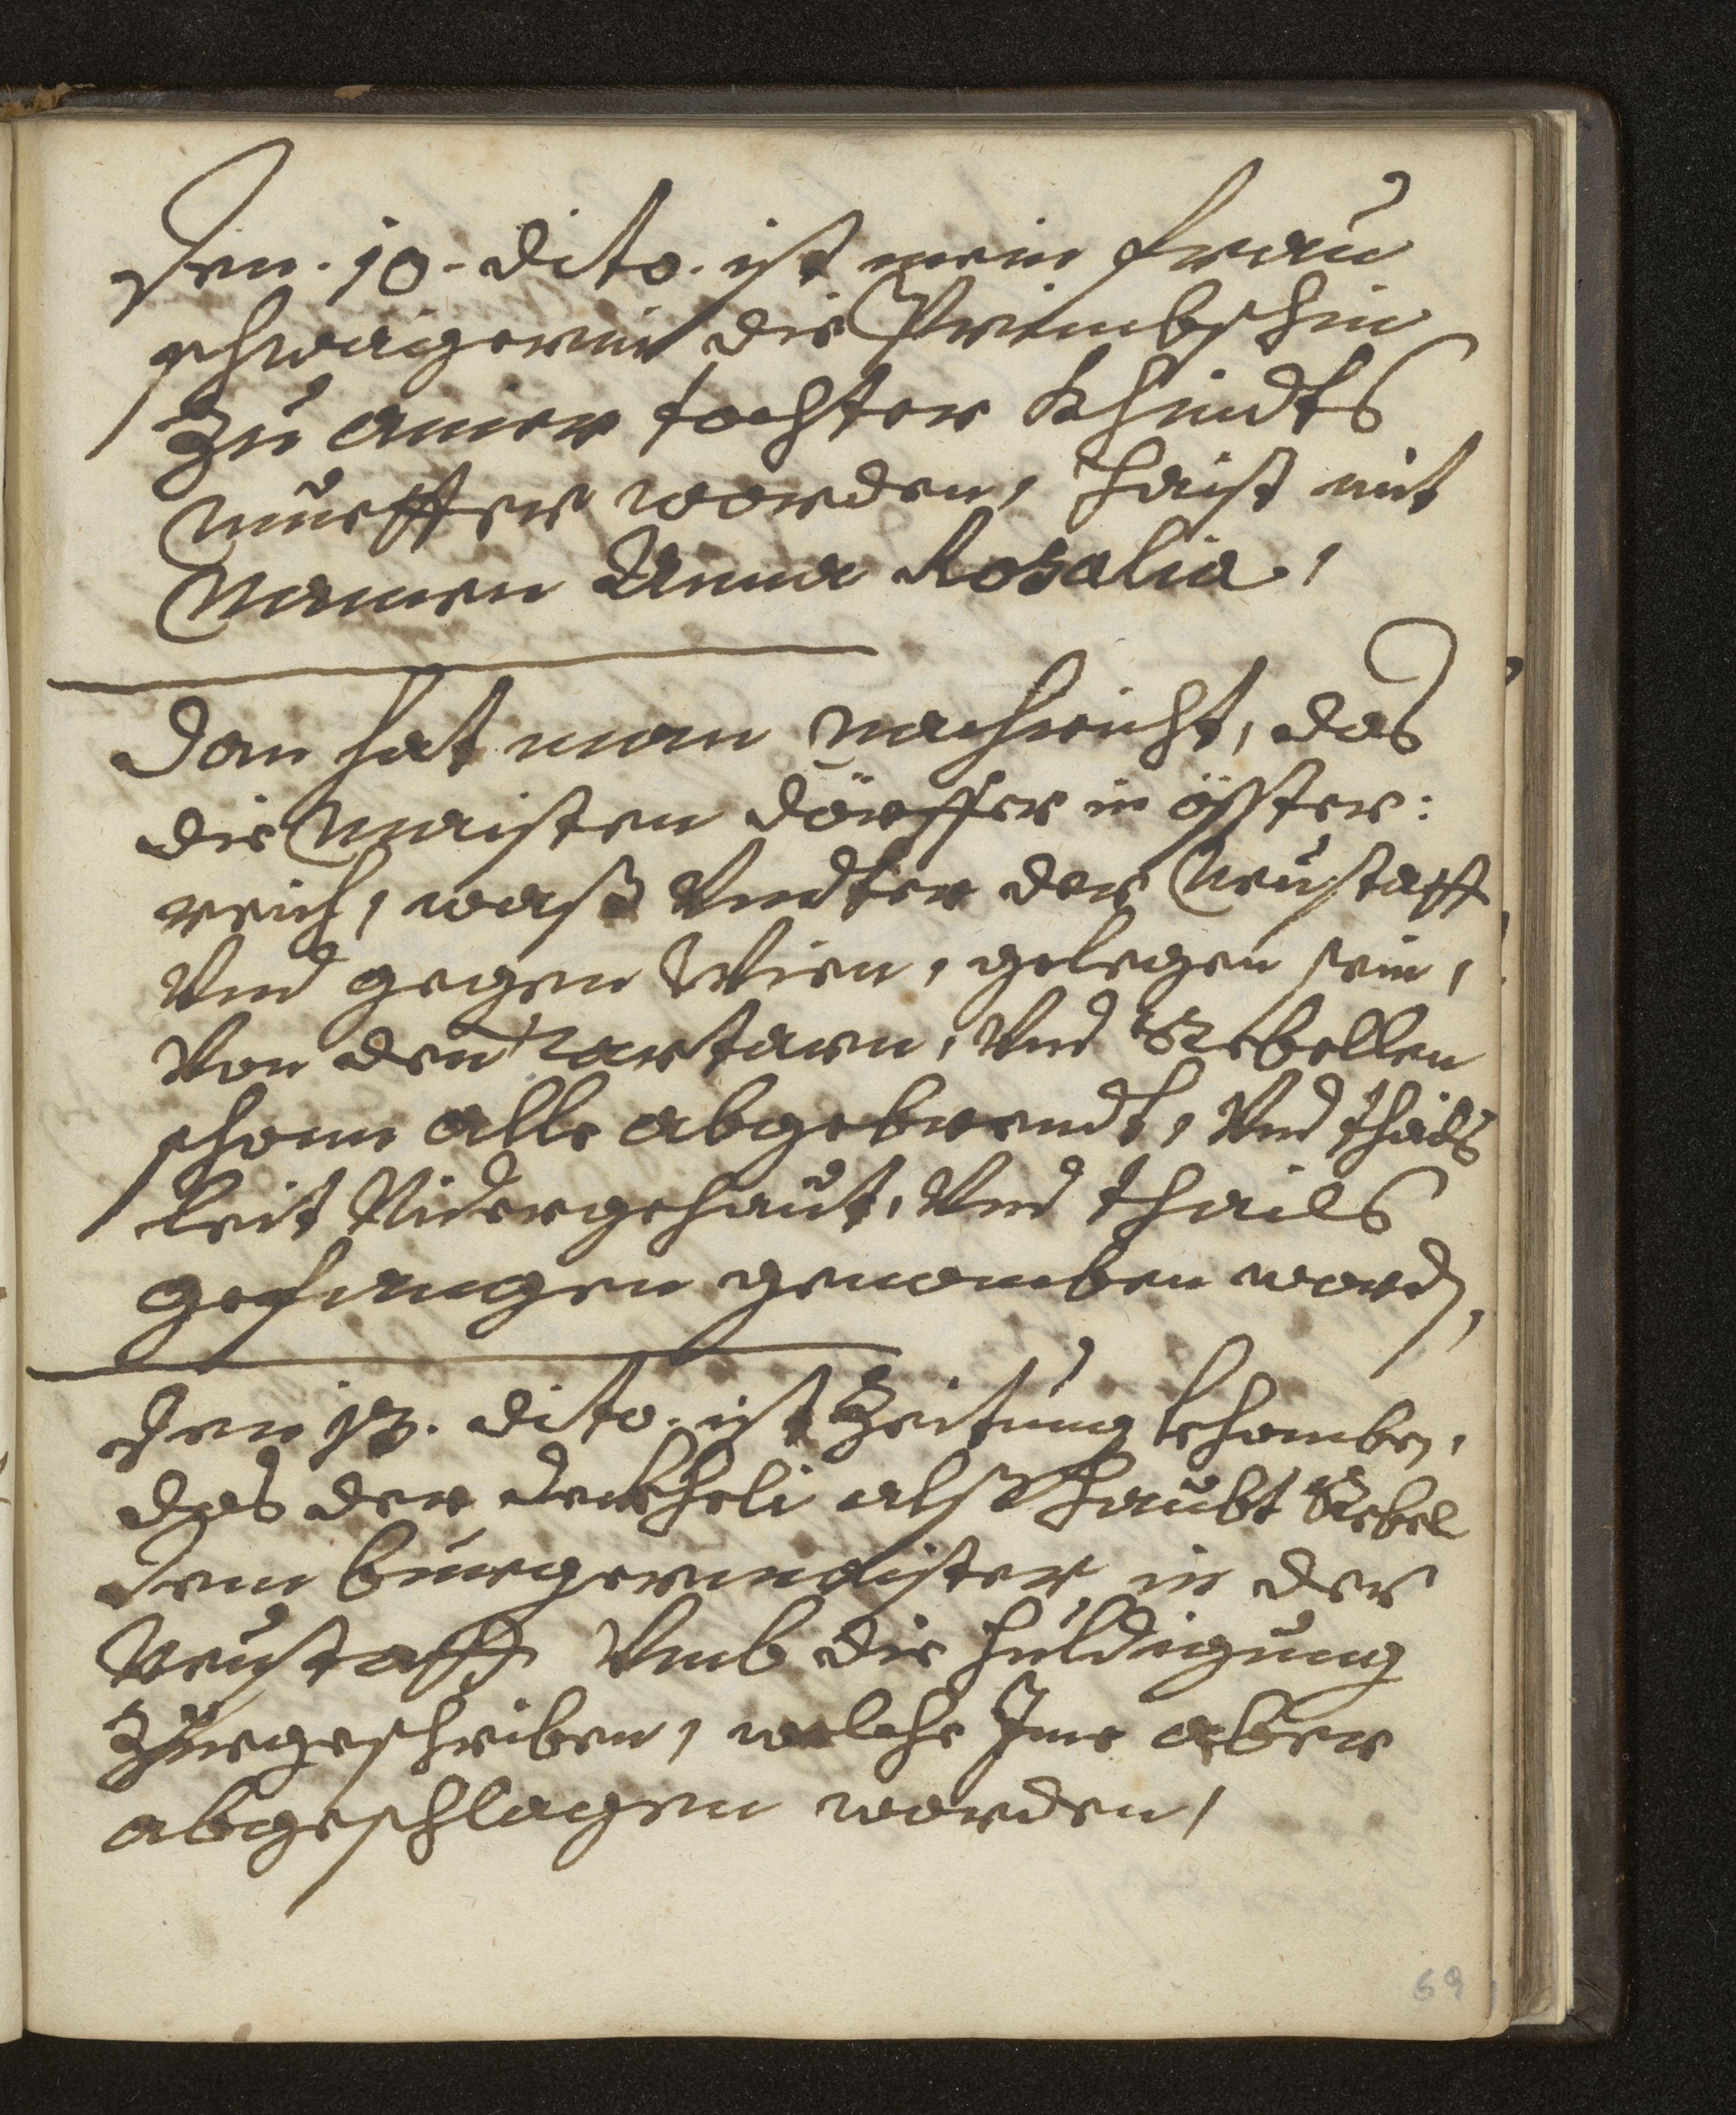 Den. 10. dito. ist mein frau
schwägerin die Preimbschin
zu ainer tochter Khindts
muetter worden, haist mit
Namen Anna Rosalia,
Dan hat man nachricht, das
die maisten dörffer in öster:
reich, waß Undter der Neustatt
Und gegen Wien, gelegen sein,
Von den Tartarn, Und Rebellen
schonn alle abgebrendt, Und thails
leit Nidergehaut, Und thails
gefangen genomben word,
Den 13. dito. ist Zeitung khomben,
das der Deckheli alß haubt Rebel
dem burgermaister in der
Neustatt Umb die huldigung
Zuegeschriben, welche Ime aber
abgeschlagen worden,
69